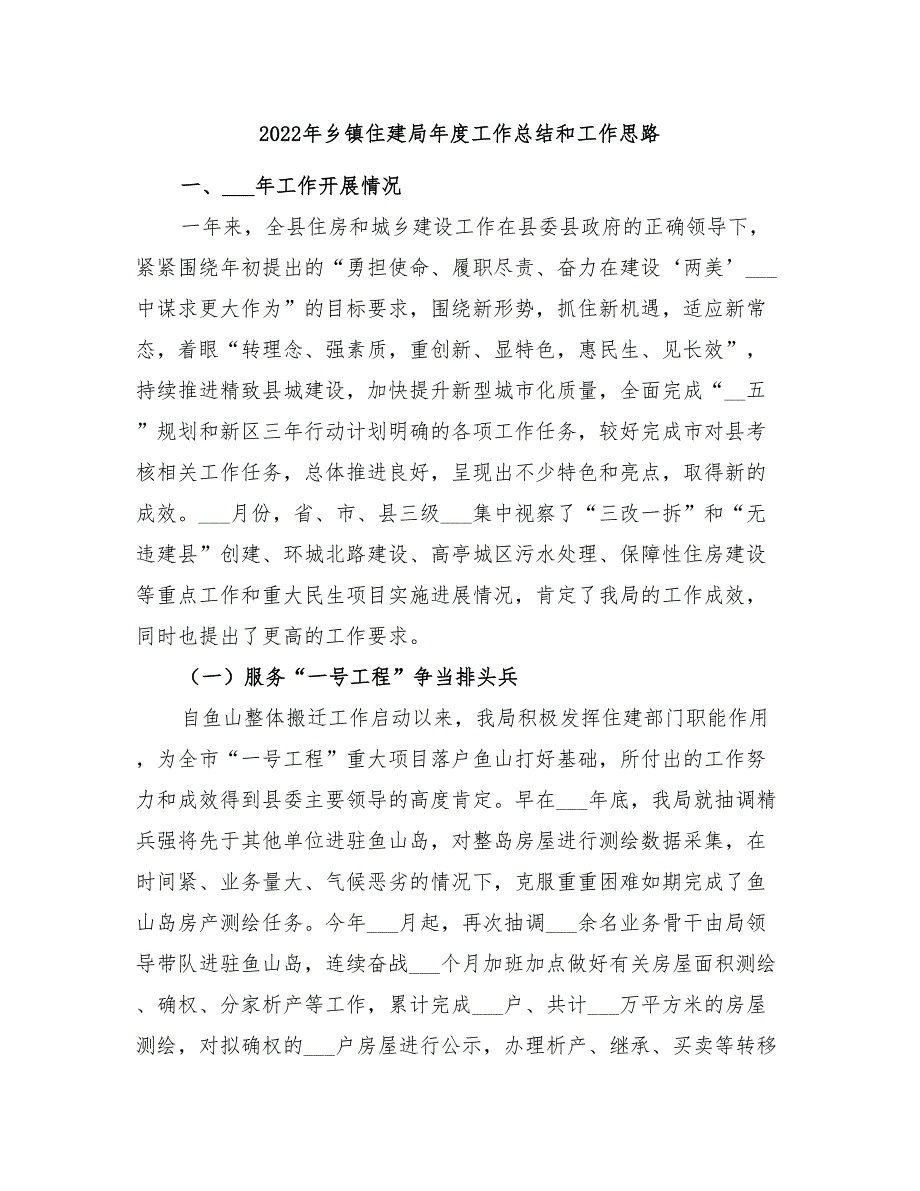 2022年乡镇住建局年度工作总结和工作思路
一、___年工作开展情况
一年来，全县住房和城乡建设工作在县委县政府的正确领导下，
紧紧围绕年初提出的“勇担使命、履职尽责、奋力在建设‘两美’___
中谋求更大作为”的目标要求，围绕新形势，抓住新机遇，适应新常
态，着眼“转理念、强素质，重创新、显特色，惠民生、见长效”，
持续推进精致县城建设，加快提升新型城市化质量，全面完成“__五
”规划和新区三年行动计划明确的各项工作任务，较好完成市对县考
核相关工作任务，总体推进良好，呈现出不少特色和亮点，取得新的
成效。___月份，省、市、县三级___集中视察了“三改一拆”和“无
违建县”创建、环城北路建设、高亭城区污水处理、保障性住房建设
等重点工作和重大民生项目实施进展情况，肯定了我局的工作成效，
同时也提出了更高的工作要求。
（一）服务“一号工程”争当排头兵
自鱼山整体搬迁工作启动以来，我局积极发挥住建部门职能作用
，为全市“一号工程”重大项目落户鱼山打好基础，所付出的工作努
力和成效得到县委主要领导的高度肯定。早在___年底，我局就抽调精
兵强将先于其他单位进驻鱼山岛，对整岛房屋进行测绘数据采集，在
时间紧、业务量大、气候恶劣的情况下，克服重重困难如期完成了鱼
山岛房产测绘任务。今年___月起，再次抽调___余名业务骨干由局领
导带队进驻鱼山岛，连续奋战___个月加班加点做好有关房屋面积测绘
、确权、分家析产等工作，累计完成___户、共计___万平方米的房屋
测绘，对拟确权的___户房屋进行公示，办理析产、继承、买卖等转移